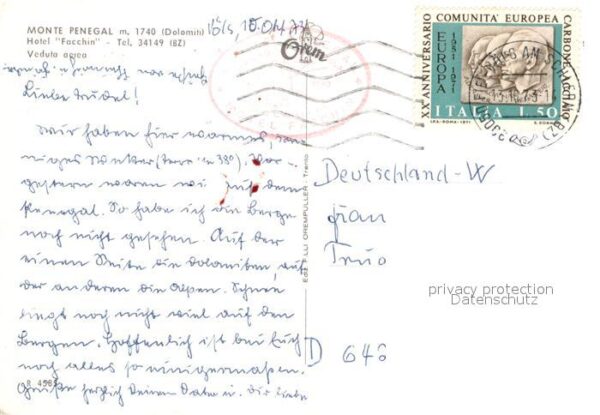 MONTE PENEGAL m, 1740 (Dolomiti)
Hotel "Facchin" - Tel, 34149 (BZ)
Veduta aerea
Liebe Trudel!
Wir haben hier warmes, son
niges Wetter
gestern waren wir auf dem
Penegal. So habe ich die Berge
noch nicht gesehen. Auf der
einen Seite die Dolomiten, auf
der anderen die Alpen. Schnee
liegt noch nicht viel auf den
Bergen. Hoffentlich ist bei Euch
noch alles so einigermaßen.
Grüße herzlich Deinen Vater u. Dir liebe
R 4565
Ediz. F.LLI OREMPULLER - Trento
Orem
XX ANNIVERSARIO COMUNITÀ EUROPEA CARBONE ACCIAIO
EUROPA
1951
1971
ITALIA L. 50
I.P.S.-ROMA-1971
Deutschland-W
Frau
Truo
D 646
privacy protection
Datenschutz